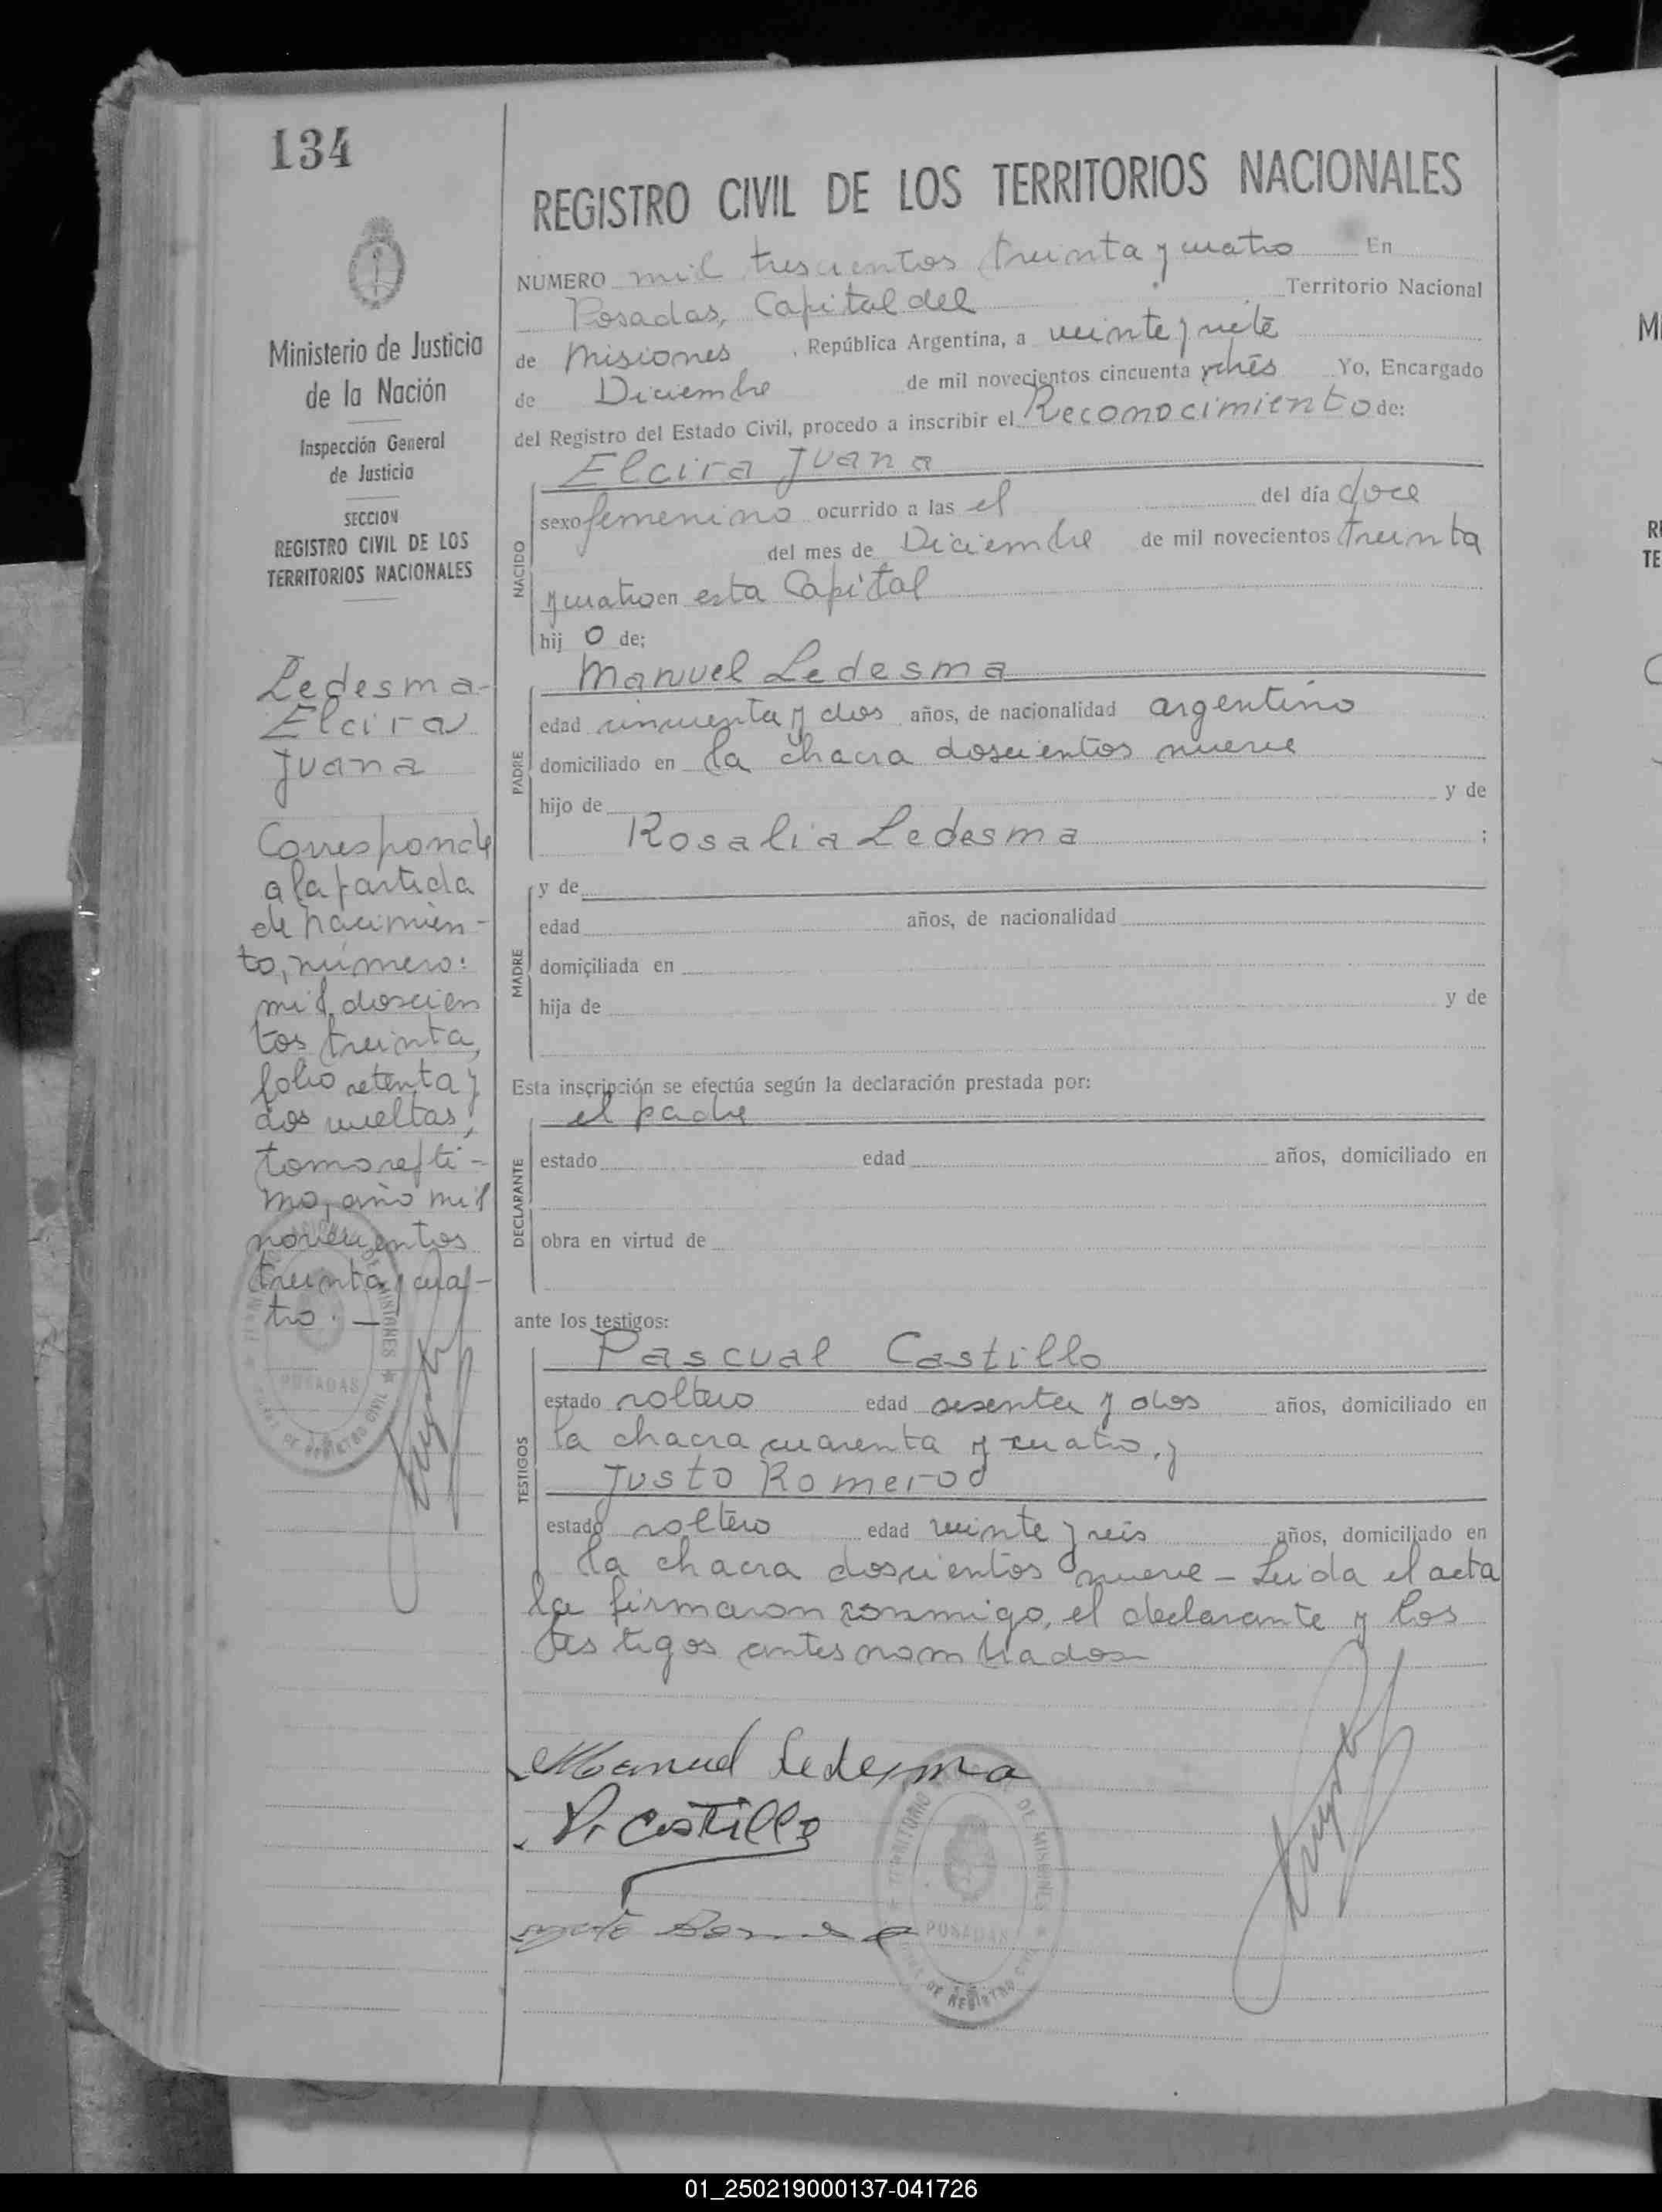 134
Ministerio de Justicia
de la Nación
Inspección General
de Justicia
SECCION
REGISTRO CIVIL DE LOS
TERRITORIOS NACIONALES
Ledesma-
Elcira
Juana
Corresponde
a la partida
de nacimien-
to, número:
mil doscien
tos treinta,
folio setenta y
dos vueltas,
tomo septi-
mo, año mil
novecientos
treinta y cua-
tro. —
REGISTRO CIVIL DE LOS TERRITORIOS NACIONALES
NUMERO mil trescientos treinta y cuatro En
Posadas, Capital del Territorio Nacional
de Misiones, República Argentina, a veinte y siete
de Diciembre de mil novecientos cincuenta y trés Yo, Encargado
del Registro del Estado Civil, procedo a inscribir el Reconocimiento de:
Elcira Juana
NACIDO
sexo femenino ocurrido a las el del día doce
del mes de Diciembre de mil novecientos treinta
y cuatro en esta Capital
hij o de;
Manuel Ledesma
PADRE
edad cincuenta y dos años, de nacionalidad argentino
domiciliado en la chacra doscientos nueve
hijo de y de
Rosalia Ledesma ;
y de
MADRE
edad años, de nacionalidad
domiciliada en
hija de y de
Esta inscripción se efectúa según la declaración prestada por:
el padre
DECLARANTE
estado edad años, domiciliado en
obra en virtud de
ante los testigos:
Pascual Castillo
TESTIGOS
estado soltero edad sesenta y dos años, domiciliado en
la chacra cuarenta y cuatro, y
Justo Romero
estado soltero edad veinte y seis años, domiciliado en
la chacra doscientos nueve - Leida el acta
la firmaron conmigo, el declarante y los
testigos antes nombrados
Manuel Ledesma
P. Castillo
TERRITORIO DE MISIONES
POSADAS
DE REGISTRO CIVIL
M
RE
TE
01_250219000137-041726